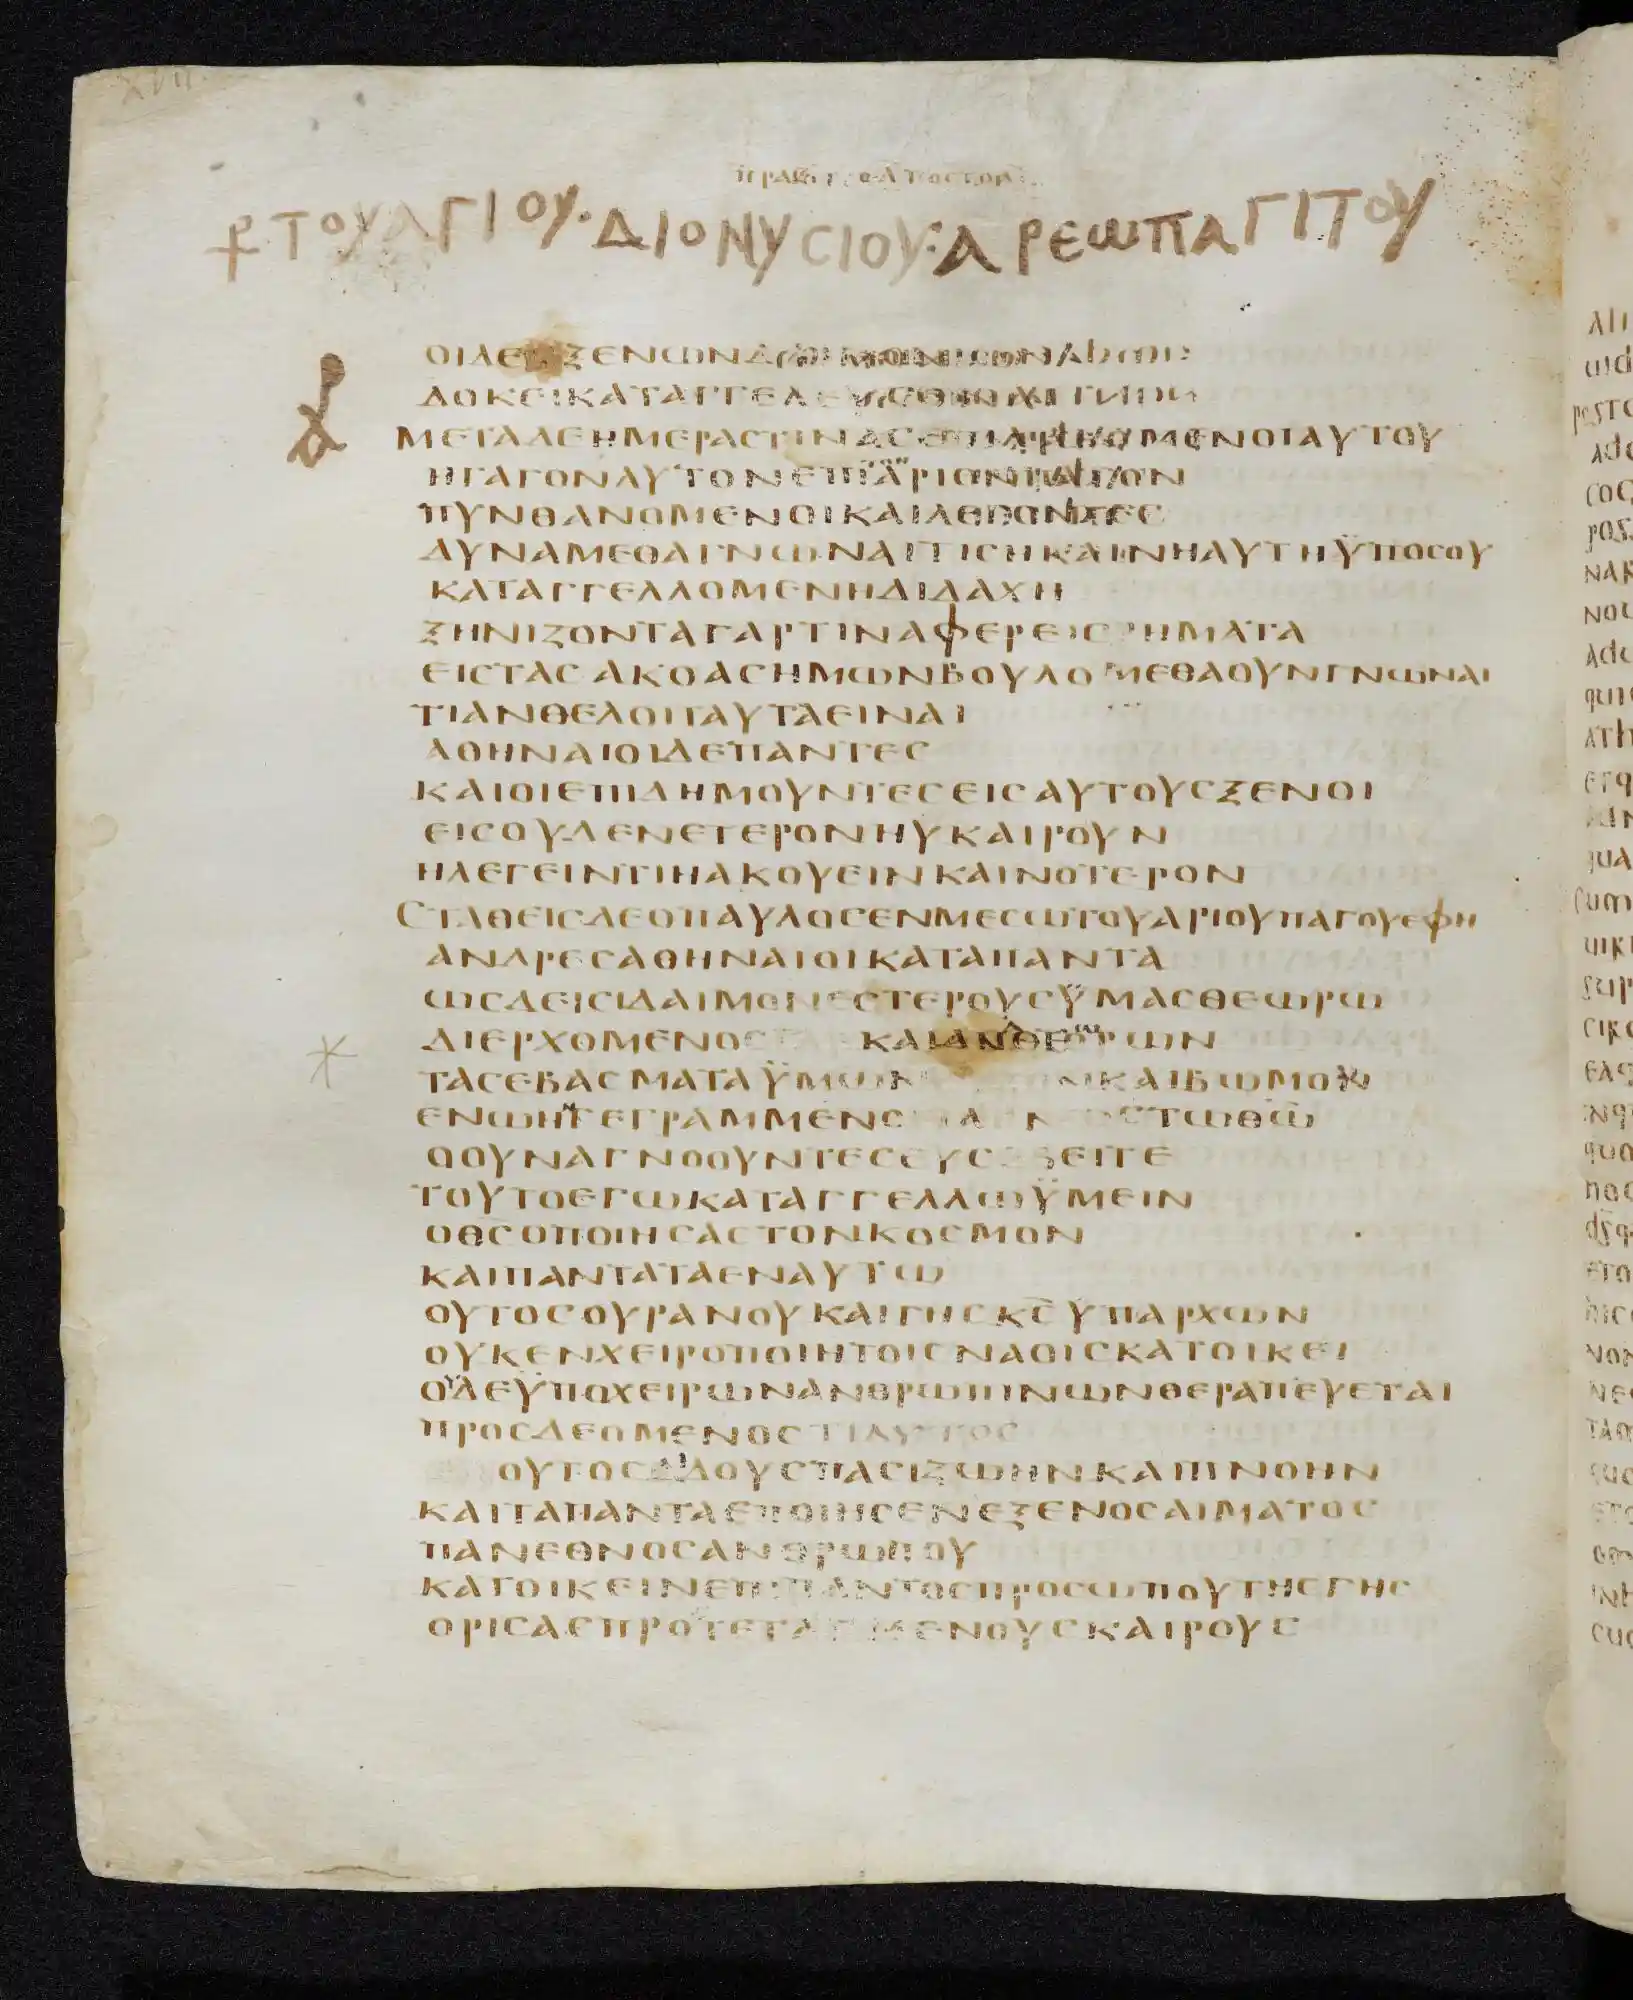 ΠΡΑΞ ΑΠΟΣΤΟΛ
ΤΟΥ ΑΓΙΟΥ· ΔΙΟΝΥCΙΟΥ: ΑΡΕΩΠΑΓΙΤΟΥ
ΟΙΔΕ ΞΕΝΩΝ
ΔΟΚΕΙ ΚΑΤΑΓΓΕΛΕΥC
ΜΕΤΑ ΔΕ ΗΜΕΡΑC ΤΙΝΑC ΕΠΙΛΑΒΟΜΕΝΟΙ ΑΥΤΟΥ
ΗΓΑΓΟΝ ΑΥΤΟΝ ΕΠΙ ΑΡΙΟΝ ΠΑΓΟΝ
ΠΥΝΘΑΝΟΜΕΝΟΙ ΚΑΙ ΛΕΓΟΝΤΕC
ΔΥΝΑΜΕΘΑ ΓΝΩΝΑΙ ΤΙC Η ΚΑΙΝΗ ΑΥΤΗ ΫΠΟ CΟΥ
ΚΑΤΑΓΓΕΛΛΟΜΕΝΗ ΔΙΔΑΧΗ
ΞΗΝΙΖΟΝΤΑ ΓΑΡ ΤΙΝΑ ΦΕΡΕΙC ΡΗΜΑΤΑ
ΕΙC ΤΑC ΑΚΟΑC ΗΜΩΝ ΒΟΥΛΟΜΕΘΑ ΟΥΝ ΓΝΩΝΑΙ
ΤΙ ΑΝ ΘΕΛΟΙ ΤΑΥΤΑ ΕΙΝΑΙ
ΑΘΗΝΑΙΟΙ ΔΕ ΠΑΝΤΕC
ΚΑΙ ΟΙ ΕΠΙΔΗΜΟΥΝΤΕC ΕΙC ΑΥΤΟΥC ΞΕΝΟΙ
ΕΙC ΟΥΔΕΝ ΕΤΕΡΟΝ ΗΥΚΑΙΡΟΥΝ
Η ΛΕΓΕΙΝ ΤΙ Η ΑΚΟΥΕΙΝ ΚΑΙΝΟΤΕΡΟΝ
CΤΑΘΕΙC ΔΕ Ο ΠΑΥΛΟC ΕΝ ΜΕCΩ ΤΟΥ ΑΡΙΟΥ ΠΑΓΟΥ ΕΦΗ
ΑΝΔΡΕC ΑΘΗΝΑΙΟΙ ΚΑΤΑ ΠΑΝΤΑ
ΩC ΔΕΙCΙΔΑΙΜΟΝΕCΤΕΡΟΥC ΫΜΑC ΘΕΩΡΩ
ΔΙΕΡΧΟΜΕΝΟC ΚΑΙ ΑΝΘΕΩΡΩΝ
ΤΑ CΕΒΑCΜΑΤΑ ΫΜΩΝ ΚΑΙ ΒΩΜΟΝ
ΕΝ Ω ΗΝ ΓΕΓΡΑΜΜΕΝΟ ΑΓΝΩCΤΩ ΘΩ
Ο ΟΥΝ ΑΓΝΟΟΥΝΤΕC ΕΥCΕΒΕΙΤΕ
ΤΟΥΤΟ ΕΓΩ ΚΑΤΑΓΓΕΛΛΩ ΫΜΕΙΝ
Ο ΘC Ο ΠΟΙΗCΑC ΤΟΝ ΚΟCΜΟΝ
ΚΑΙ ΠΑΝΤΑ ΤΑ ΕΝ ΑΥΤΩ
ΟΥΤΟC ΟΥΡΑΝΟΥ ΚΑΙ ΓΗC ΚC ΥΠΑΡΧΩΝ
ΟΥΚ ΕΝ ΧΕΙΡΟΠΟΙΗΤΟΙC ΝΑΟΙC ΚΑΤΟΙΚΕΙ
ΟΥΔΕ ΫΠΟ ΧΕΙΡΩΝ ΑΝΘΡΩΠΙΝΩΝ ΘΕΡΑΠΕΥΕΤΑΙ
ΠΡΟCΔΕΟΜΕΝΟC ΤΙ ΑΥΤΟC
ΟΥΤΟC ΔΙΔΟΥC ΠΑCΙ ΖΩΗΝ ΚΑΙ ΠΙΝΟΗΝ
ΚΑΙ ΤΑ ΠΑΝΤΑ ΕΠΟΙΗCΕΝ ΕΞ ΕΝΟC ΑΙΜΑΤΟC
ΠΑΝ ΕΘΝΟC ΑΝΘΡΩΠΟΥ
ΚΑΤΟΙΚΕΙΝ ΕΠΙ ΠΑΝΤΟC ΠΡΟCΩΠΟΥ ΤΗC ΓΗC
ΟΡΙCΑC ΠΡΟΤΕΤΑΓΜΕΝΟΥC ΚΑΙΡΟΥC